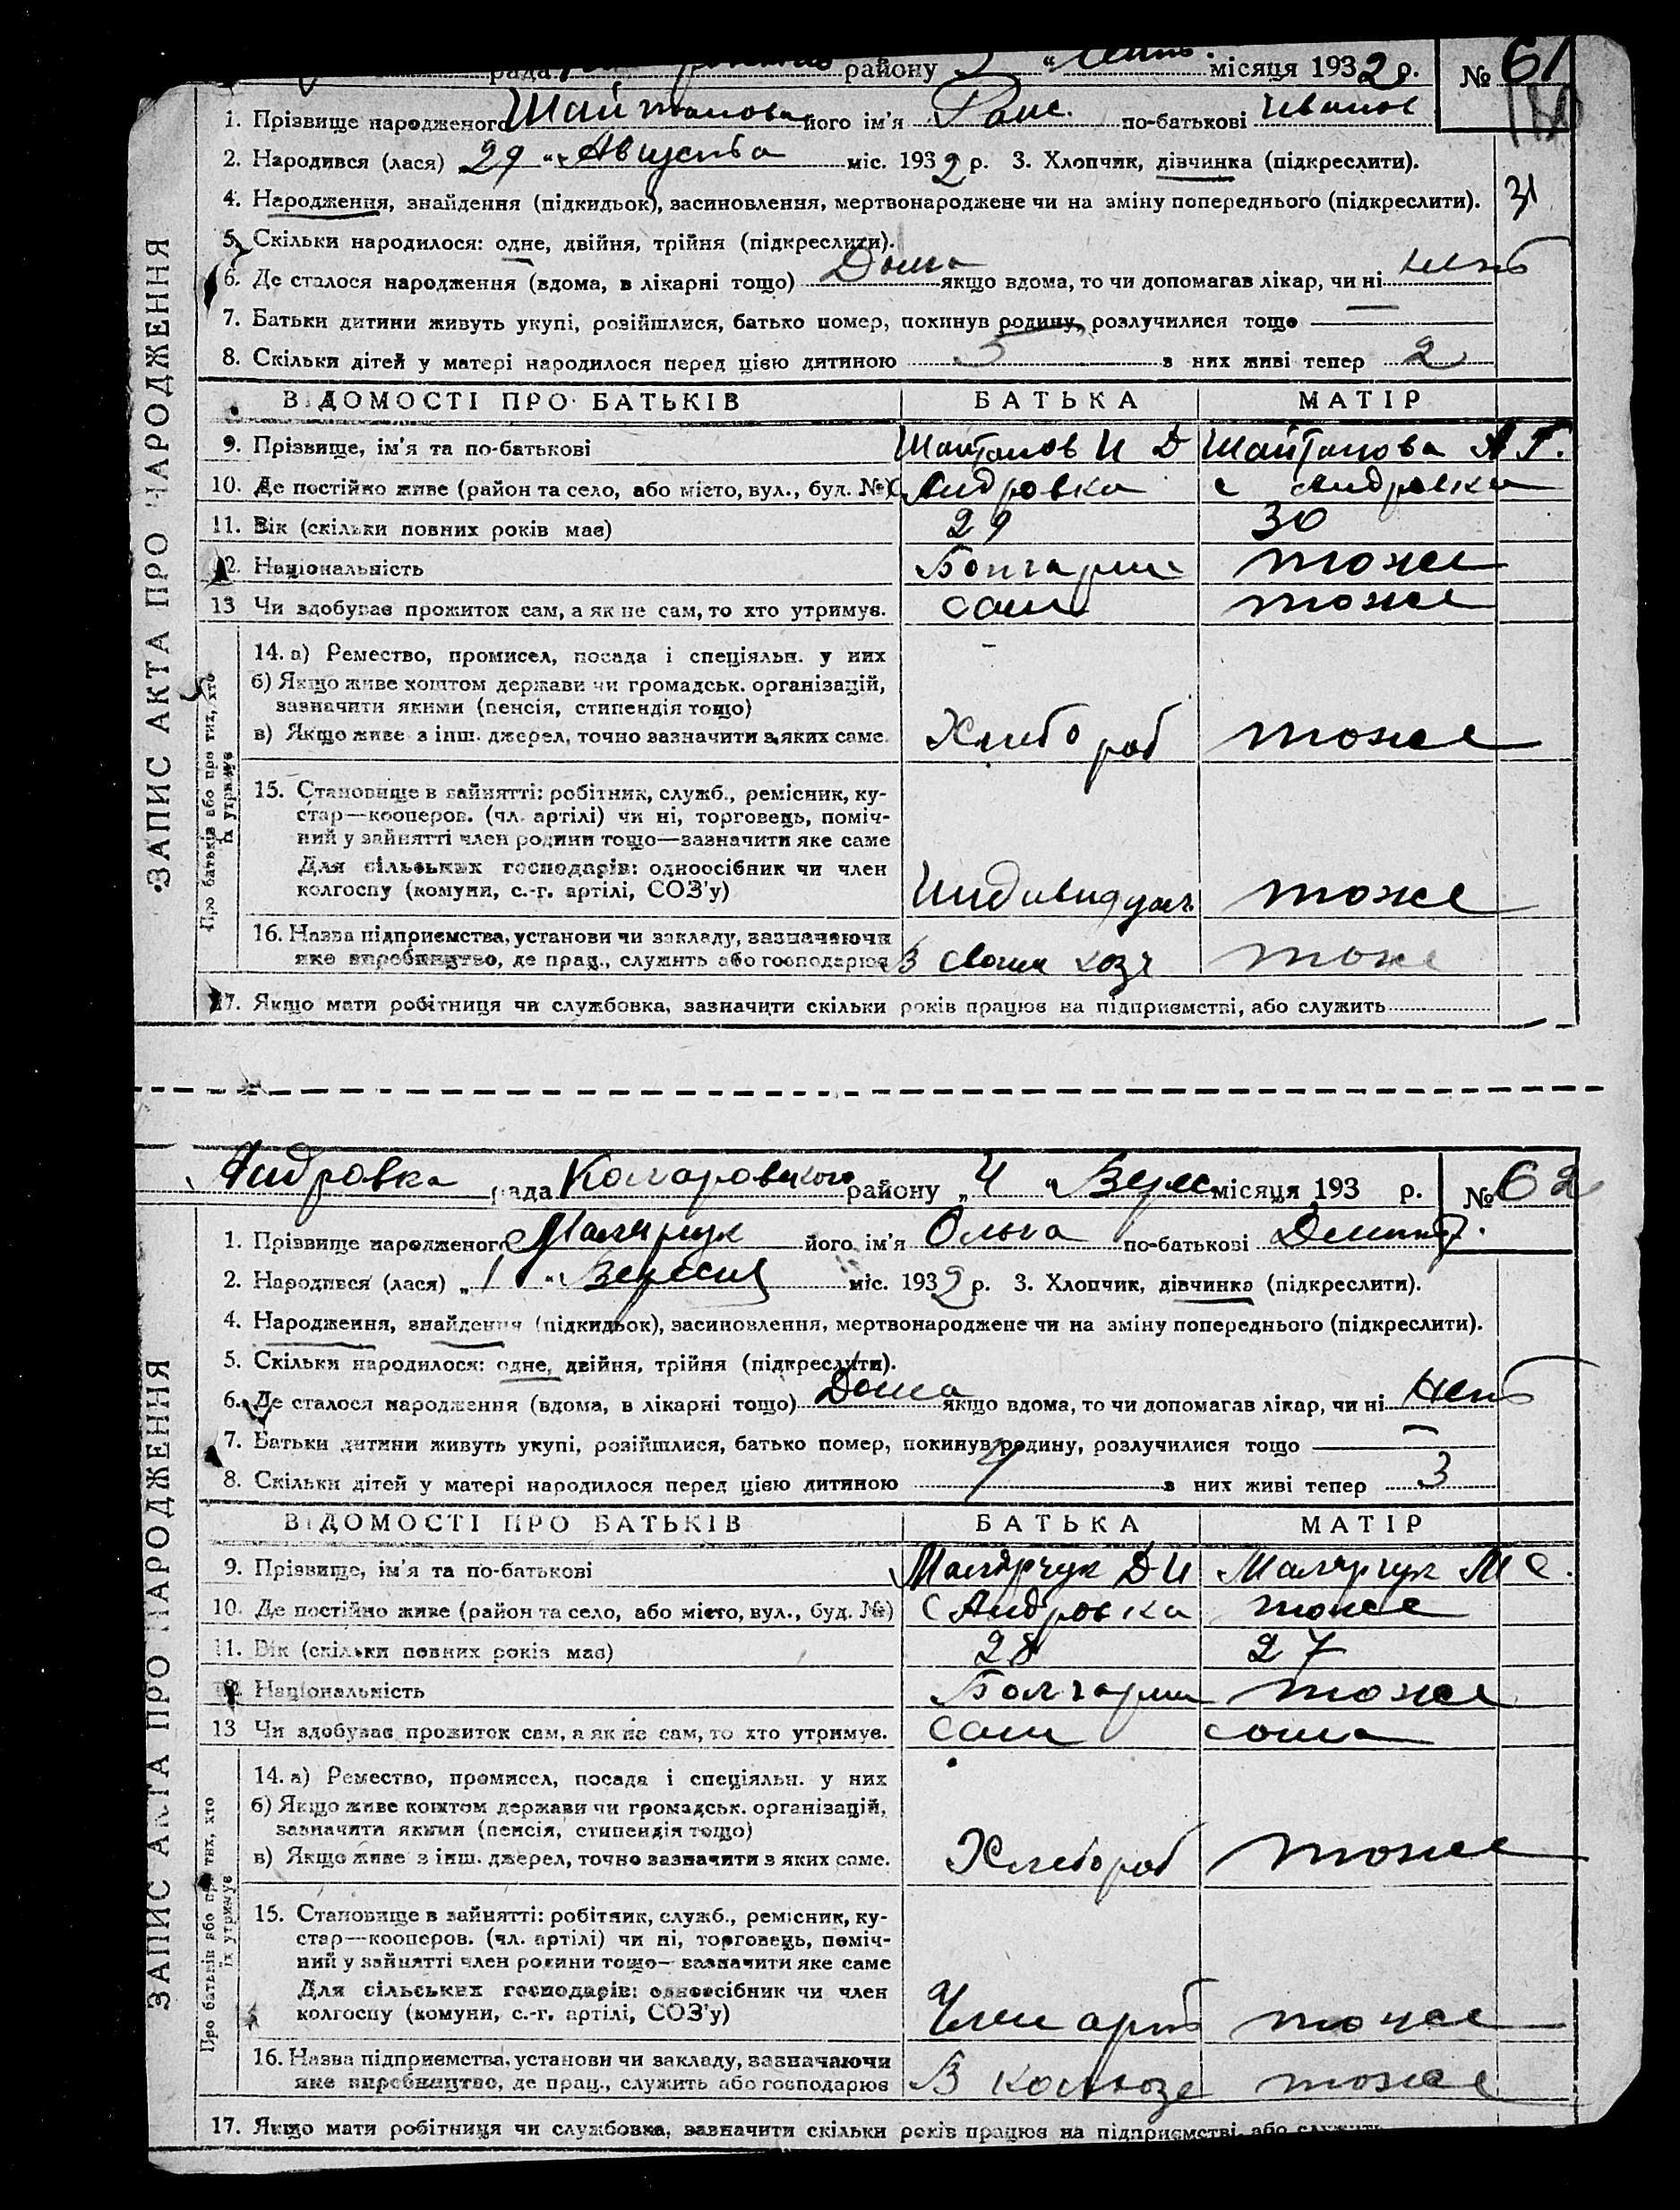 рада району 3 " Сент. місяця 1932 р. № 61
1. Прізвище народженого Шайтанова його ім'я Раис. по-батькові Иванов
2. Народився (лася) 29 " Августа міс. 1932 р. 3. Хлопчик, дівчинка (підкреслити).
31
4. Народження, знайдення (підкидьок), засиновлення, мертвонароджене чи на зміну попереднього (підкреслити).
5. Скільки народилося: одне, двійня, трійня (підкреслити).
6. Де сталося народження (вдома, в лікарні тощо) Дома якщо вдома, то чи допомагав лікар, чи ні нет
7. Батьки дитини живуть укупі, розійшлися, батько помер, покинув родину, розлучилися тощо —
8. Скільки дітей у матері народилося перед цією дитиною 5 з них живі тепер 2
ВІДОМОСТІ ПРО БАТЬКІВ БАТЬКА МАТІР
9. Прізвище, ім'я та по-батькові Шайтанов И Д Шайтанова А Г.
10. Де постійно живе (район та село, або місто, вул., буд. №) с Андровка с Андровка
11. Вік (скільки повних років має) 29 30
12. Національність Болгарин тоже
13 Чи здобуває прожиток сам, а як не сам, то хто утримує. сам тоже
14. а) Ремество, промисел, посада і спеціяльн. у них
б) Якщо живе коштом держави чи громадськ. організацій,
зазначити якими (пенсія, стипендія тощо)
в) Якщо живе з інш. джерел, точно зазначити з яких саме. Хлибороб тоже
15. Становище в зайнятті: робітник, служб., ремісник, ку-
стар—кооперов. (чл. артілі) чи ні, торговець, поміч-
ний у зайнятті член родини тощо—зазначити яке саме
Для сільських господарів: одноосібник чи член
колгоспу (комуни, с.-г. артілі, СОЗ'у) Индивидуал тоже
16. Назва підприємства, установи чи закладу, зазначаючи
яке виробництво, де прац., служить або господарює В своем хоз. тоже
17. Якщо мати робітниця чи службовка, зазначити скільки років працює на підприємстві, або служить
ЗАПИС АКТА ПРО НАРОДЖЕННЯ
Про батьків або про тих, хто
їх утримує
Андровка рада Комаровского району „ 4 " Верес місяця 193 р. № 62
1. Прізвище народженого Малярчук його ім'я Ольга по-батькові Дмитр.
2. Народився (лася) „ 1 " Вересня міс. 1932 р. 3. Хлопчик, дівчинка (підкреслити).
4. Народження, знайдення (підкидьок), засиновлення, мертвонароджене чи на зміну попереднього (підкреслити).
5. Скільки народилося: одне, двійня, трійня (підкреслити).
6. Де сталося народження (вдома, в лікарні тощо) Дома якщо вдома, то чи допомагав лікар, чи ні нет
7. Батьки дитини живуть укупі, розійшлися, батько помер, покинув родину, розлучилися тощо —
8. Скільки дітей у матері народилося перед цією дитиною 4 з них живі тепер 3
ВІДОМОСТІ ПРО БАТЬКІВ БАТЬКА МАТІР
9. Прізвище, ім'я та по-батькові Малярчук Д И Малярчук М С.
10. Де постійно живе (район та село, або місто, вул., буд. №) с Андровка тоже
11. Вік (скільки повних років має) 28 27
12. Національність Болгарин тоже
13 Чи здобуває прожиток сам, а як не сам, то хто утримує. сам сома
14. а) Ремество, промисел, посада і спеціяльн. у них
б) Якщо живе коштом держави чи громадськ. організацій,
зазначити якими (пенсія, стипендія тощо)
в) Якщо живе з інш. джерел, точно зазначити з яких саме. Хлебороб тоже
15. Становище в зайнятті: робітник, служб., ремісник, ку-
стар—кооперов. (чл. артілі) чи ні, торговець, поміч-
ний у зайнятті член родини тощо—зазначити яке саме
Для сільських господарів: одноосібник чи член
колгоспу (комуни, с.-г. артілі, СОЗ'у) Член арт тоже
16. Назва підприємства, установи чи закладу, зазначаючи
яке виробництво, де прац., служить або господарює В колхозе тоже
17. Якщо мати робітниця чи службовка, зазначити скільки років працює на підприємстві, або служить
ЗАПИС АКТА ПРО НАРОДЖЕННЯ
Про батьків або про тих, хто
їх утримує